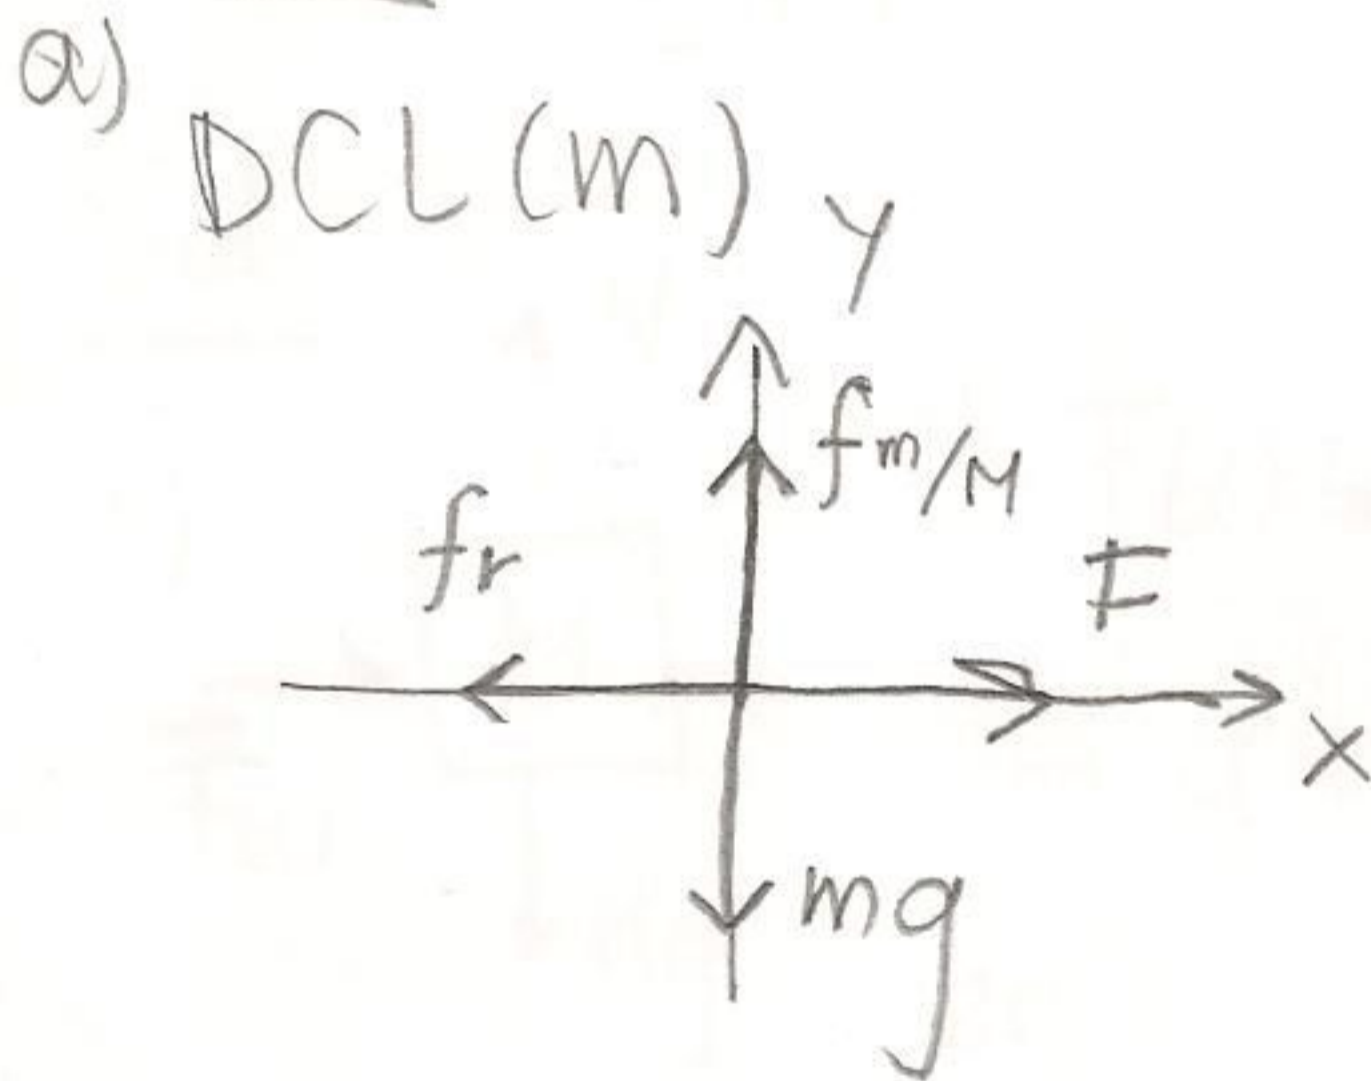 a)
DCL (m)
y
fm/M
fr
F
x
mg